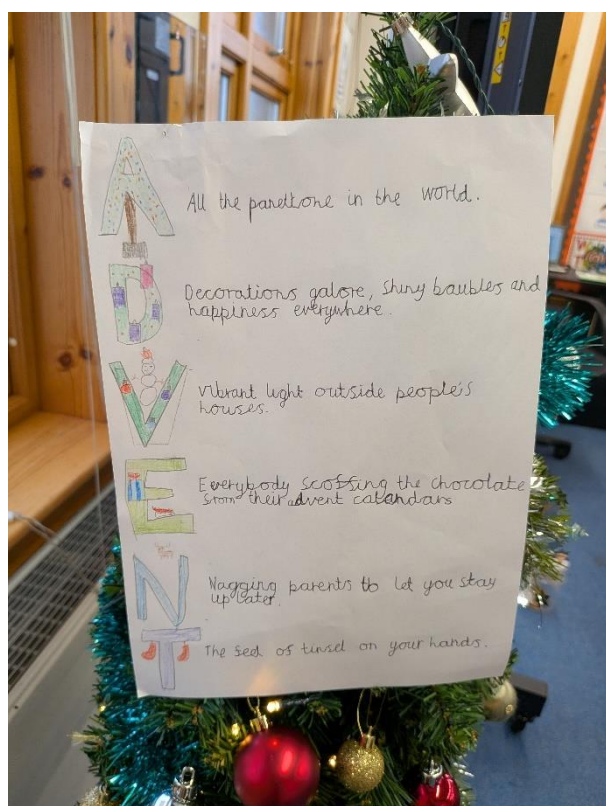 A All the panettone in the world.
D Decorations galore, shiny baubles and
happiness everywhere.
V Vibrant light outside people's
houses.
E Everybody scoffing the chocolate
from their advent calandars
N Nagging parents to let you stay
up later.
T The feel of tinsel on your hands.